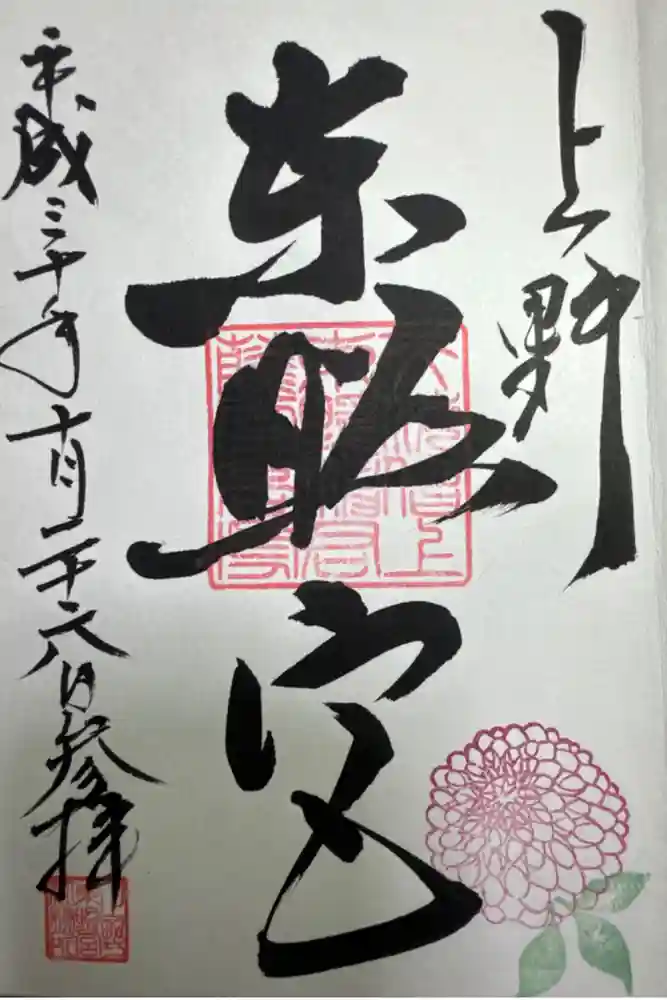 上野
東照宮
平成三十年十月二十六日参拝